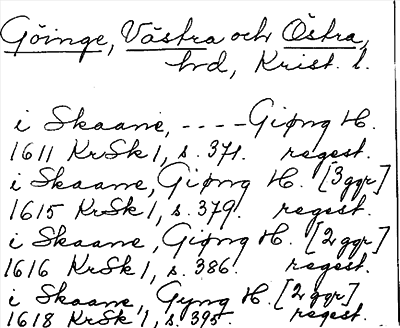 Göinge, Västra och Östra,
hd, Krist. l.
i Skaane, ---- Giøng H.
1611 KrSk 1, s. 371. regest.
i Skaane, Giøng H. [3 ggr]
1615 KrSk 1, s. 379. regest.
i Skaane, Giøng H. [2 ggr]
1616 KrSk 1, s. 386. regest.
i Skaane, Gyng H. [2 ggr]
1618 KrSk 1, s. 395. regest.